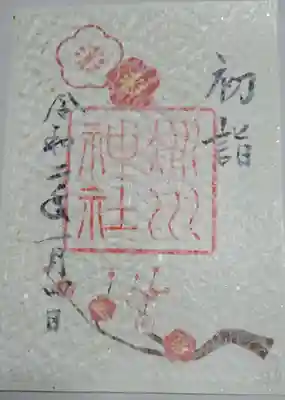 初詣
神社
令和二年一月四日